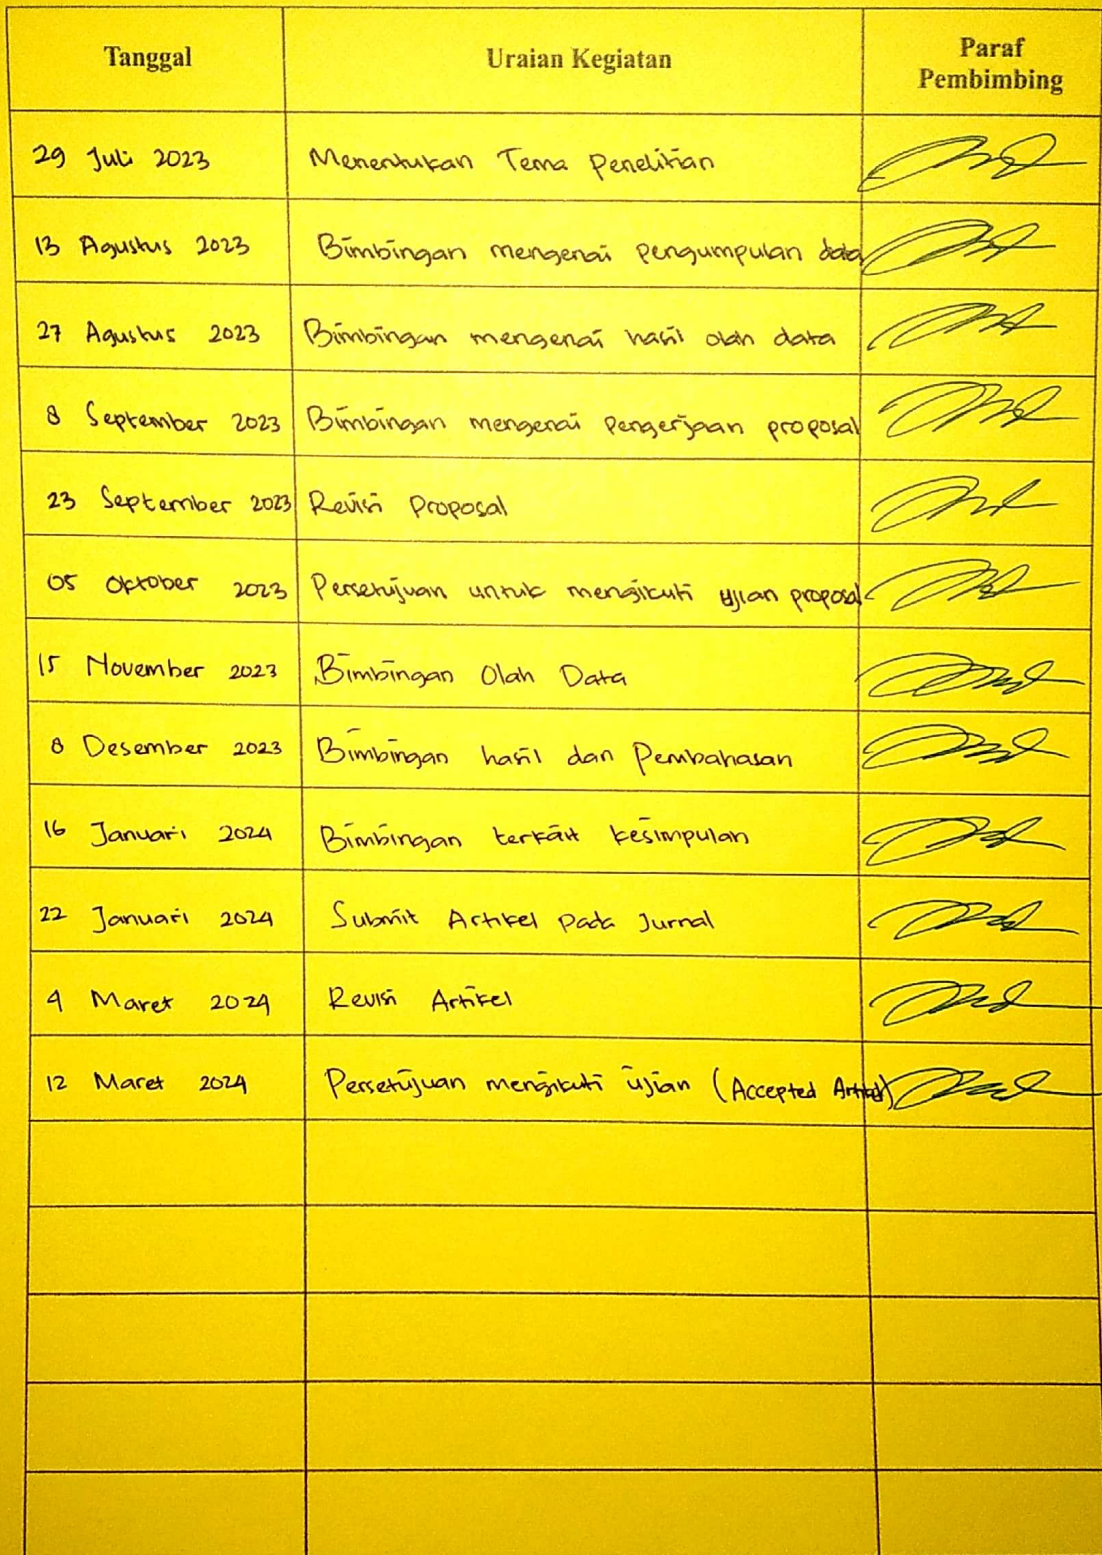 Tanggal Uraian Kegiatan Paraf
Pembimbing
29 Juli 2023 Menentukan Tema Penelitian
13 Agustus 2023 Bimbingan mengenai pengumpulan data
27 Agustus 2023 Bimbingan mengenai hasil olah data
8 September 2023 Bimbingan mengenai Pengerjaan proposal
23 September 2023 Revisi Proposal
05 Oktober 2023 Persetujuan untuk mengikuti ujian proposal
15 November 2023 Bimbingan Olah Data
8 Desember 2023 Bimbingan hasil dan Pembahasan
16 Januari 2024 Bimbingan terkait kesimpulan
22 Januari 2024 Submit Artikel pada Jurnal
4 Maret 2024 Revisi Artikel
12 Maret 2024 Persetujuan mengikuti ujian (Accepted Artikel)